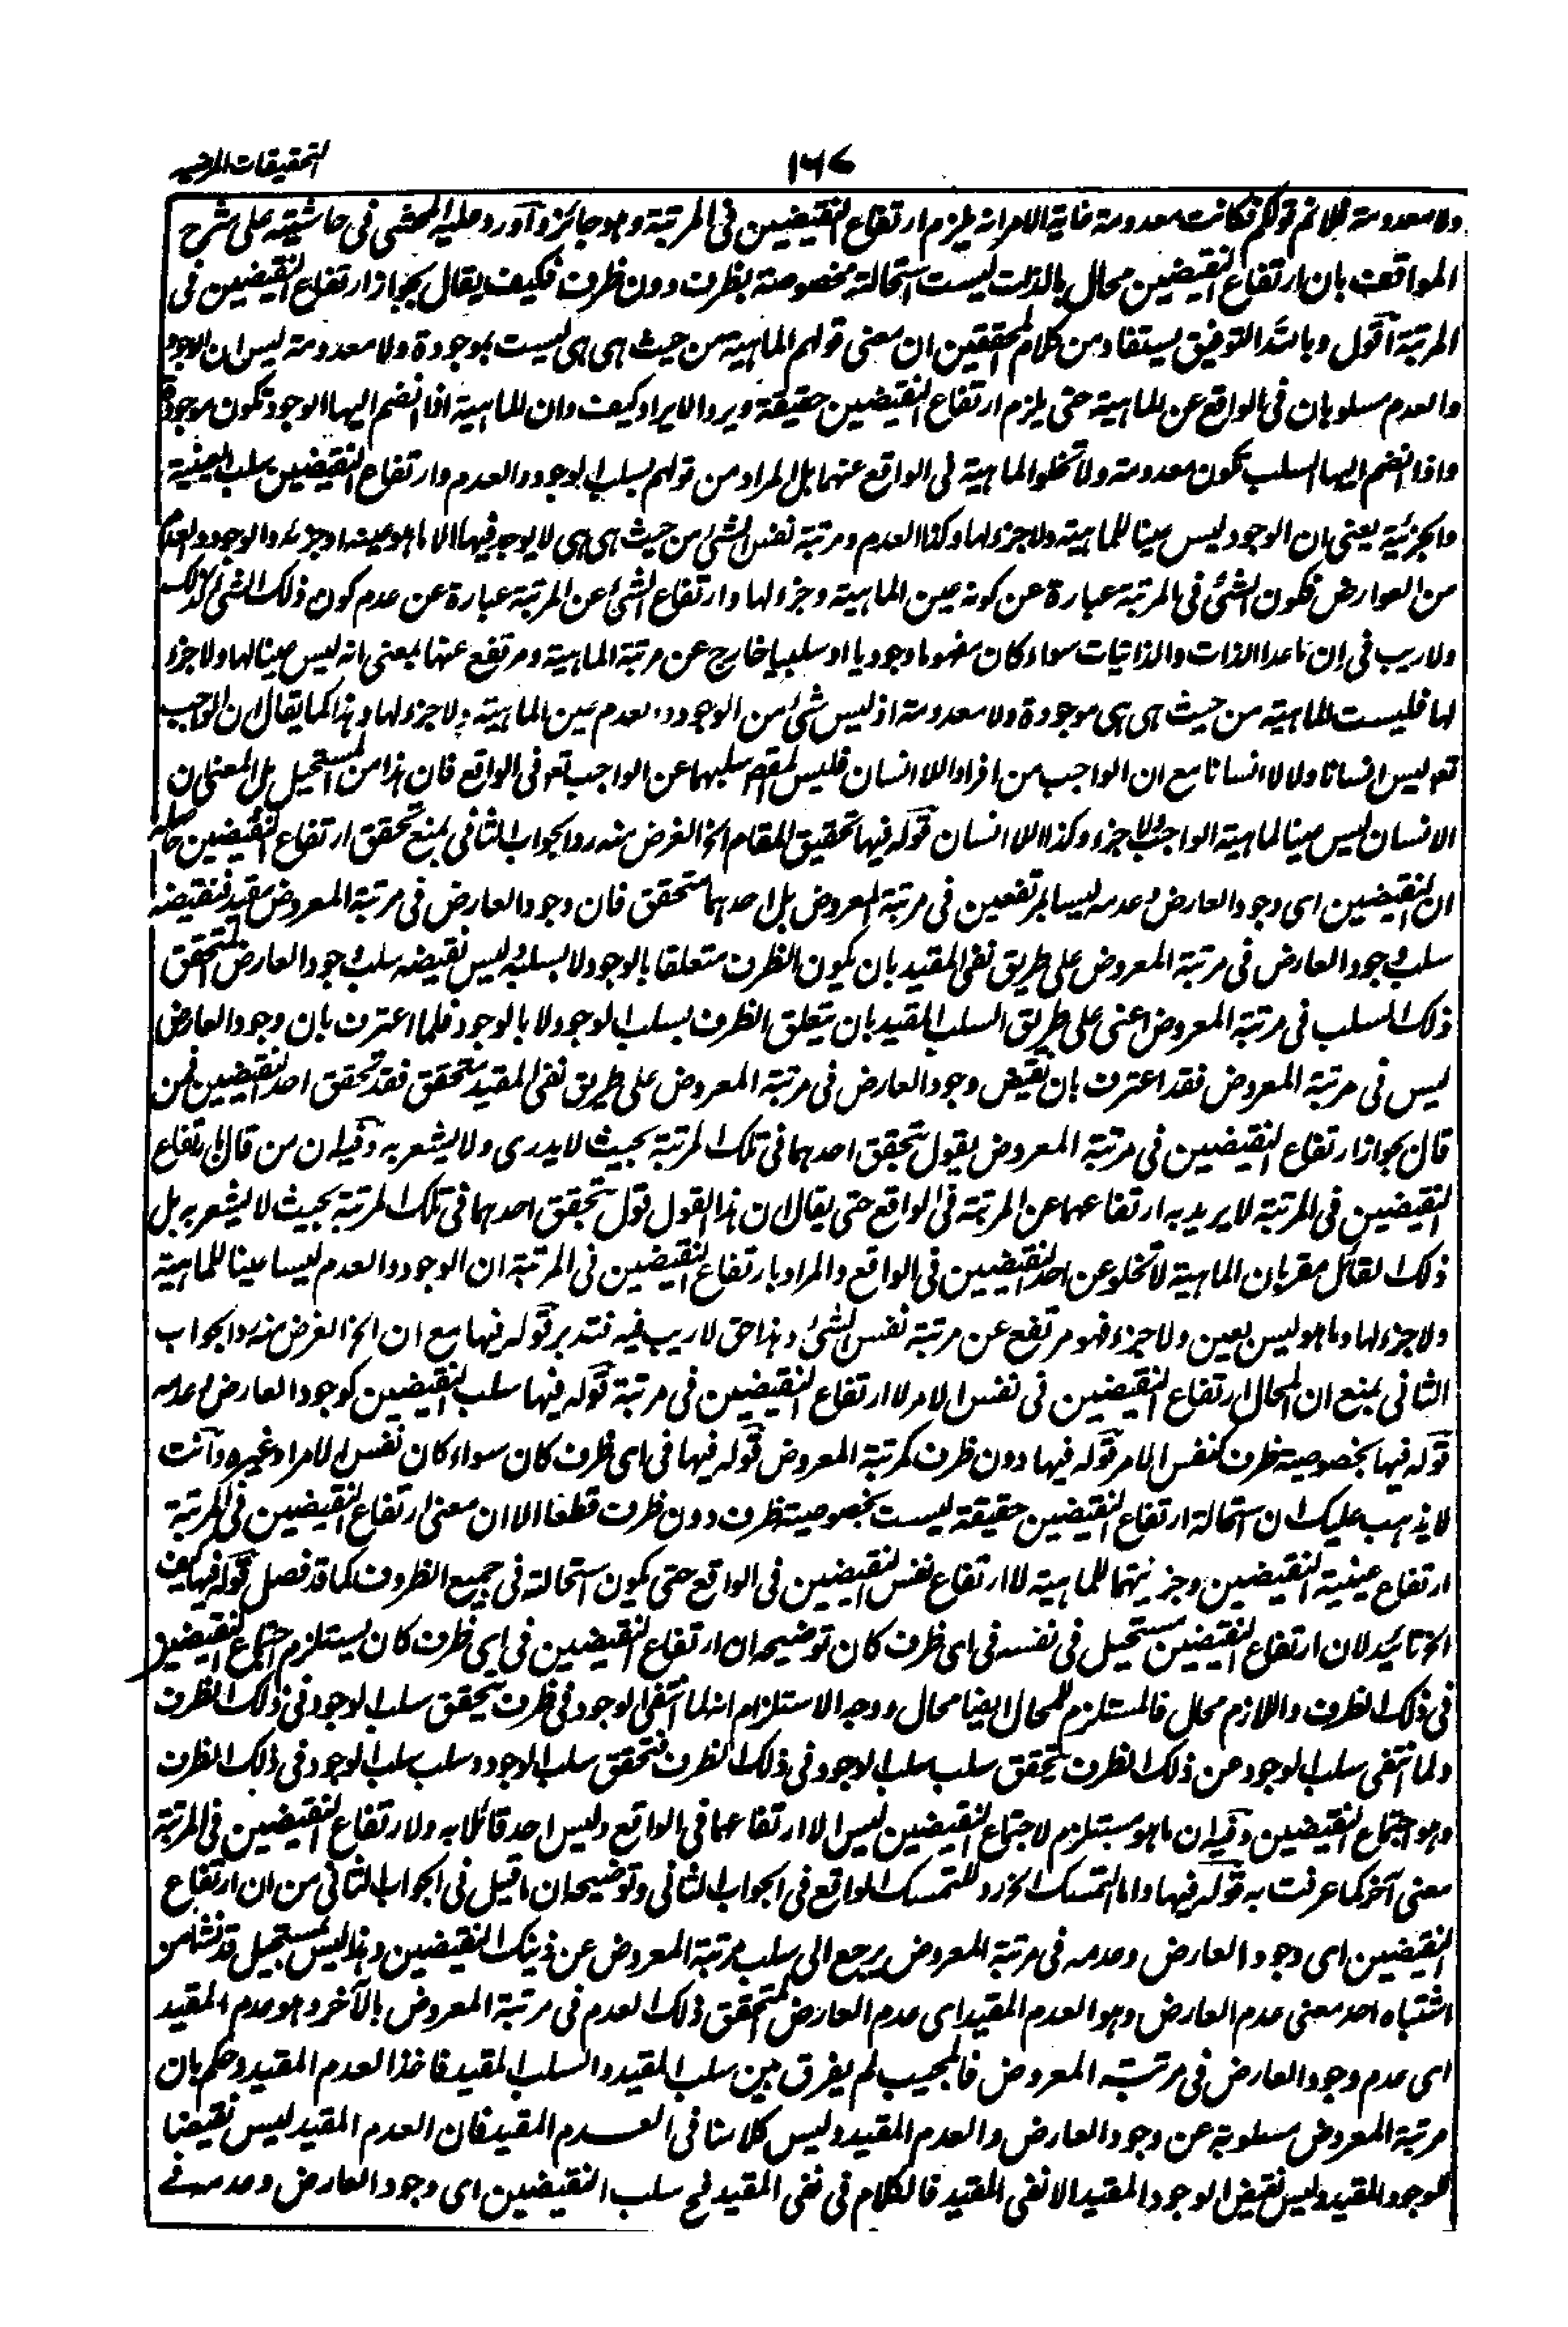 التحقيقات المرضيه
١٦٧
ولا معدومة فلا نم قولكم فكانت معدومة غاية الامر انه يلزم ارتفاع النقيضين فى المرتبة وهو جائز وآورد عليه المحشى فى حاشيته على شرح
المواقف بان ارتفاع النقيضين محال بالذات ليست استحالته مخصوصة بظرف دون ظرف فكيف يقال بجواز ارتفاع النقيضين فى
المرتبة آقول وبالله التوفيق يستفاد من كلام المحققين ان معنى قولهم الماهية من حيث هى هى ليست بموجودة ولا معدومة ليس ان الوجود
والعدم مسلوبان فى الواقع عن الماهية حتى يلزم ارتفاع النقيضين حقيقة ويرد الايراد كيف وان الماهية اذا انضم اليها الوجود تكون موجودة
واذا انضم اليها السلب تكون معدومة ولا تخلوا الماهية فى الواقع عنهما بل المراد من قولهم بسلب الوجود والعدم وارتفاع النقيضين سلب العينية
والجزئية يعنى ان الوجود ليس عينا للماهية ولا جزء لها وكذا العدم ومرتبة نفس الشئ من حيث هى هى لا يوجد فيها الا ما هو عينه او جزءه والوجود والعدم
من العوارض فكون الشئ فى المرتبة عبارة عن كونه عين الماهية وجزء لها وارتفاع الشئ عن المرتبة عبارة عن عدم كون ذلك الشئ كذلك
ولا ريب فى ان ما عدا الذات والذاتيات سواء كان مفهوما وجوديا او سلبيا خارج عن مرتبة الماهية ومرتفع عنها بمعنى انه ليس عينا لها ولا جزء
لها فليست الماهية من حيث هى هى موجودة ولا معدومة اذ ليس شئ من الوجود والعدم عين الماهية ولا جزء لها وهذا كما يقال ان الواجب
تعو ليس انسانا ولا لا انسانا مع ان الواجب من افراد اللا انسان فليس المقصو سلبهما عن الواجب تعو فى الواقع فان هذا من المستحيل بل المعنى ان
الانسان ليس عينا لماهية الواجب ولا جزء وكذا اللا انسان قوله فيها تحقيق المقام الخ الغرض منه رد الجواب الثانى بمنع تحقق ارتفاع النقيضين حاصله
ان النقيضين اى وجود العارض وعدمه ليسا بمرتفعين فى مرتبة المعروض بل احدهما متحقق فان وجود العارض فى مرتبة المعروض مقيد فنقيضه
سلب وجود العارض فى مرتبة المعروض على طريق نفى المقيد بان يكون الظرف متعلقا بالوجود لا بسلبه وليس نقيضه سلب وجود العارض المتحقق
ذلك السلب فى مرتبة المعروض اعنى على طريق السلب المقيد بان يتعلق الظرف بسلب الوجود لا بالوجود فلما اعترف بان وجود العارض
ليس فى مرتبة المعروض فقد اعترف بان نقيض وجود العارض فى مرتبة المعروض على طريق نفى المقيد متحقق فقد تحقق احد النقيضين فمن
قال بجواز ارتفاع النقيضين فى مرتبة المعروض يقول بتحقق احدهما فى تلك المرتبة بحيث لا يدرى ولا يشعر به وفيه ان من قال بارتفاع
النقيضين فى المرتبة لا يريد به ارتفاعهما عن المرتبة فى الواقع حتى يقال ان هذا القول قول بتحقق احدهما فى تلك المرتبة بحيث لا يشعر به بل
ذلك القائل مقر بان الماهية لا تخلو عن احد النقيضين فى الواقع والمراد بارتفاع النقيضين فى المرتبة ان الوجود والعدم ليسا عينا للماهية
ولا جزء لها وما هو ليس بعين ولا جزء فهو مرتفع عن مرتبة نفس الشئ وهذا حق لا ريب فيه فتدبر قوله فيها مع ان الخ الغرض منه رد الجواب
الثانى بمنع ان المحال ارتفاع النقيضين فى نفس الامر لا ارتفاع النقيضين فى مرتبة قوله فيها سلب النقيضين كوجود العارض وعدمه
قوله فيها بخصوصية ظرف كنفس الامر قوله فيها دون ظرف كمرتبة المعروض قوله فيها فى اى ظرف كان سواء كان نفس الامر او غيره وآنت
لا يذهب عليك ان استحالة ارتفاع النقيضين حقيقة ليست بخصوصية ظرف دون ظرف قطعا الا ان معنى ارتفاع النقيضين فى المرتبة
ارتفاع عينية النقيضين وجزئيتهما للماهية لا ارتفاع نفس النقيضين فى الواقع حتى يكون استحالته فى جميع الظروف كما قد فصل قوله فيها كيف
الخ تائيد لان ارتفاع النقيضين مستحيل فى نفسه فى اى ظرف كان توضيحه ان ارتفاع النقيضين فى اى ظرف كان يستلزم اجتماع النقيضين
فى ذلك الظرف واللازم محال فالمستلزم للمحال ايضا محال ووجه الاستلزام انه لما انتفى الوجود فى ظرف يتحقق سلب الوجود فى ذلك الظرف
ولما انتفى سلب الوجود عن ذلك الظرف يتحقق سلب سلب الوجود فى ذلك الظرف فتحقق سلب الوجود وسلب سلب الوجود فى ذلك الظرف
وهو اجتماع النقيضين وفيه ان ما هو مستلزم لاجتماع النقيضين ليس الا ارتفاعهما فى الواقع وليس احد قائلا به ولارتفاع النقيضين فى المرتبة
معنى آخر كما عرفت به قوله فيها واما التمسك الخ رد للتمسك الواقع فى الجواب الثانى وتوضيحه ان ما قيل فى الجواب الثانى من ان ارتفاع
النقيضين اى وجود العارض وعدمه فى مرتبة المعروض يرجع الى سلب مرتبة المعروض عن ذينك النقيضين وهذا ليس بمستحيل قد نشا من
اشتباه احد معنى عدم العارض وهو العدم المقيد اى عدم العارض المتحقق ذلك العدم فى مرتبة المعروض بالآخر وهو عدم المقيد
اى عدم وجود العارض فى مرتبة المعروض فالمجيب لم يفرق بين سلب المقيد والسلب المقيد فاخذ العدم المقيد وحكم بان
مرتبة المعروض مسلوبة عن وجود العارض والعدم المقيد وليس كلامنا فى العدم المقيد فان العدم المقيد ليس نقيضا
للوجود المقيد وليس نقيض الوجود المقيد الا نفى المقيد فالكلام فى نفى المقيد فح سلب النقيضين اى وجود العارض وعدمه فے